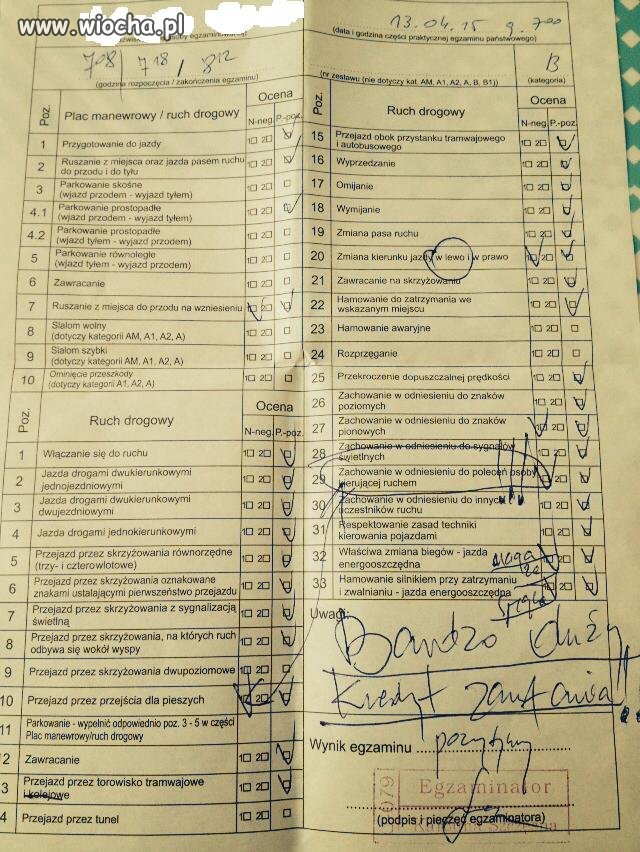 www.wiocha.pl
13.04.15 9.700
(data i godzina części praktycznej egzaminu państwowego)
708 718 / 812
(godzina rozpoczęcia / zakończenia egzaminu)
(nr zestawu (nie dotyczy kat. AM, A1, A2, A, B, B1))
B
(kategoria)
Poz. Plac manewrowy / ruch drogowy Ocena
N-neg. P.-poz.
1 Przygotowanie do jazdy 1 2
2 Ruszanie z miejsca oraz jazda pasem ruchu
do przodu i do tyłu 1 2
3 Parkowanie skośne
(wjazd przodem - wyjazd tyłem) 1 2
4.1 Parkowanie prostopadłe
(wjazd przodem - wyjazd tyłem) 1 2
4.2 Parkowanie prostopadłe
(wjazd tyłem - wyjazd przodem) 1 2
5 Parkowanie równoległe
(wjazd tyłem - wyjazd przodem) 1 2
6 Zawracanie 1 2
7 Ruszanie z miejsca do przodu na wzniesieniu 1 2
8 Slalom wolny
(dotyczy kategorii AM, A1, A2, A) 1 2
9 Slalom szybki
(dotyczy kategorii A1, A2, A) 1 2
10 Ominięcie przeszkody
(dotyczy kategorii A1, A2, A) 1 2
Poz. Ruch drogowy Ocena
N-neg. P.-poz.
1 Włączanie się do ruchu 1 2
2 Jazda drogami dwukierunkowymi
jednojezdniowymi 1 2
3 Jazda drogami dwukierunkowymi
dwujezdniowymi 1 2
4 Jazda drogami jednokierunkowymi 1 2
5 Przejazd przez skrzyżowania równorzędne
(trzy- i czterowlotowe) 1 2
6 Przejazd przez skrzyżowania oznakowane
znakami ustalającymi pierwszeństwo przejazdu 1 2
7 Przejazd przez skrzyżowania z sygnalizacją
świetlną 1 2
8 Przejazd przez skrzyżowania, na których ruch
odbywa się wokół wyspy 1 2
9 Przejazd przez skrzyżowania dwupoziomowe 1 2
10 Przejazd przez przejścia dla pieszych 2
11 Parkowanie - wypełnić odpowiednio poz. 3 - 5 w części
Plac manewrowy/ruch drogowy
2 Zawracanie 1 2
3 Przejazd przez torowisko tramwajowe
i kolejowe 1 2
4 Przejazd przez tunel 1 2
Poz. Ruch drogowy Ocena
N-neg. P.-poz.
15 Przejazd obok przystanku tramwajowego
i autobusowego 1 2
16 Wyprzedzanie 1 2
17 Omijanie 1 2
18 Wymijanie 1 2
19 Zmiana pasa ruchu 1 2
20 Zmiana kierunku jazdy w lewo i w prawo 1 2
21 Zawracanie na skrzyżowaniu 1 2
22 Hamowanie do zatrzymania we
wskazanym miejscu 1 2
23 Hamowanie awaryjne 1 2
24 Rozprzęganie 1 2
25 Przekroczenie dopuszczalnej prędkości 1 2
26 Zachowanie w odniesieniu do znaków
poziomych 1 2
27 Zachowanie w odniesieniu do znaków
pionowych 1 2
28 Zachowanie w odniesieniu do sygnałów
świetlnych 1 2
29 Zachowanie w odniesieniu do poleceń osoby
kierującej ruchem 2
30 Zachowanie w odniesieniu do innych
uczestników ruchu 1 2
31 Respektowanie zasad techniki
kierowania pojazdami 1 2
32 Właściwa zmiana biegów - jazda
energooszczędna 2
33 Hamowanie silnikiem przy zatrzymaniu
i zwalnianiu - jazda energooszczędna 2
Uwagi
Bardzo duży
kredyt zaufania!!
Wynik egzaminu pozytywny
079 Egzaminator
(podpis i pieczęć egzaminatora)